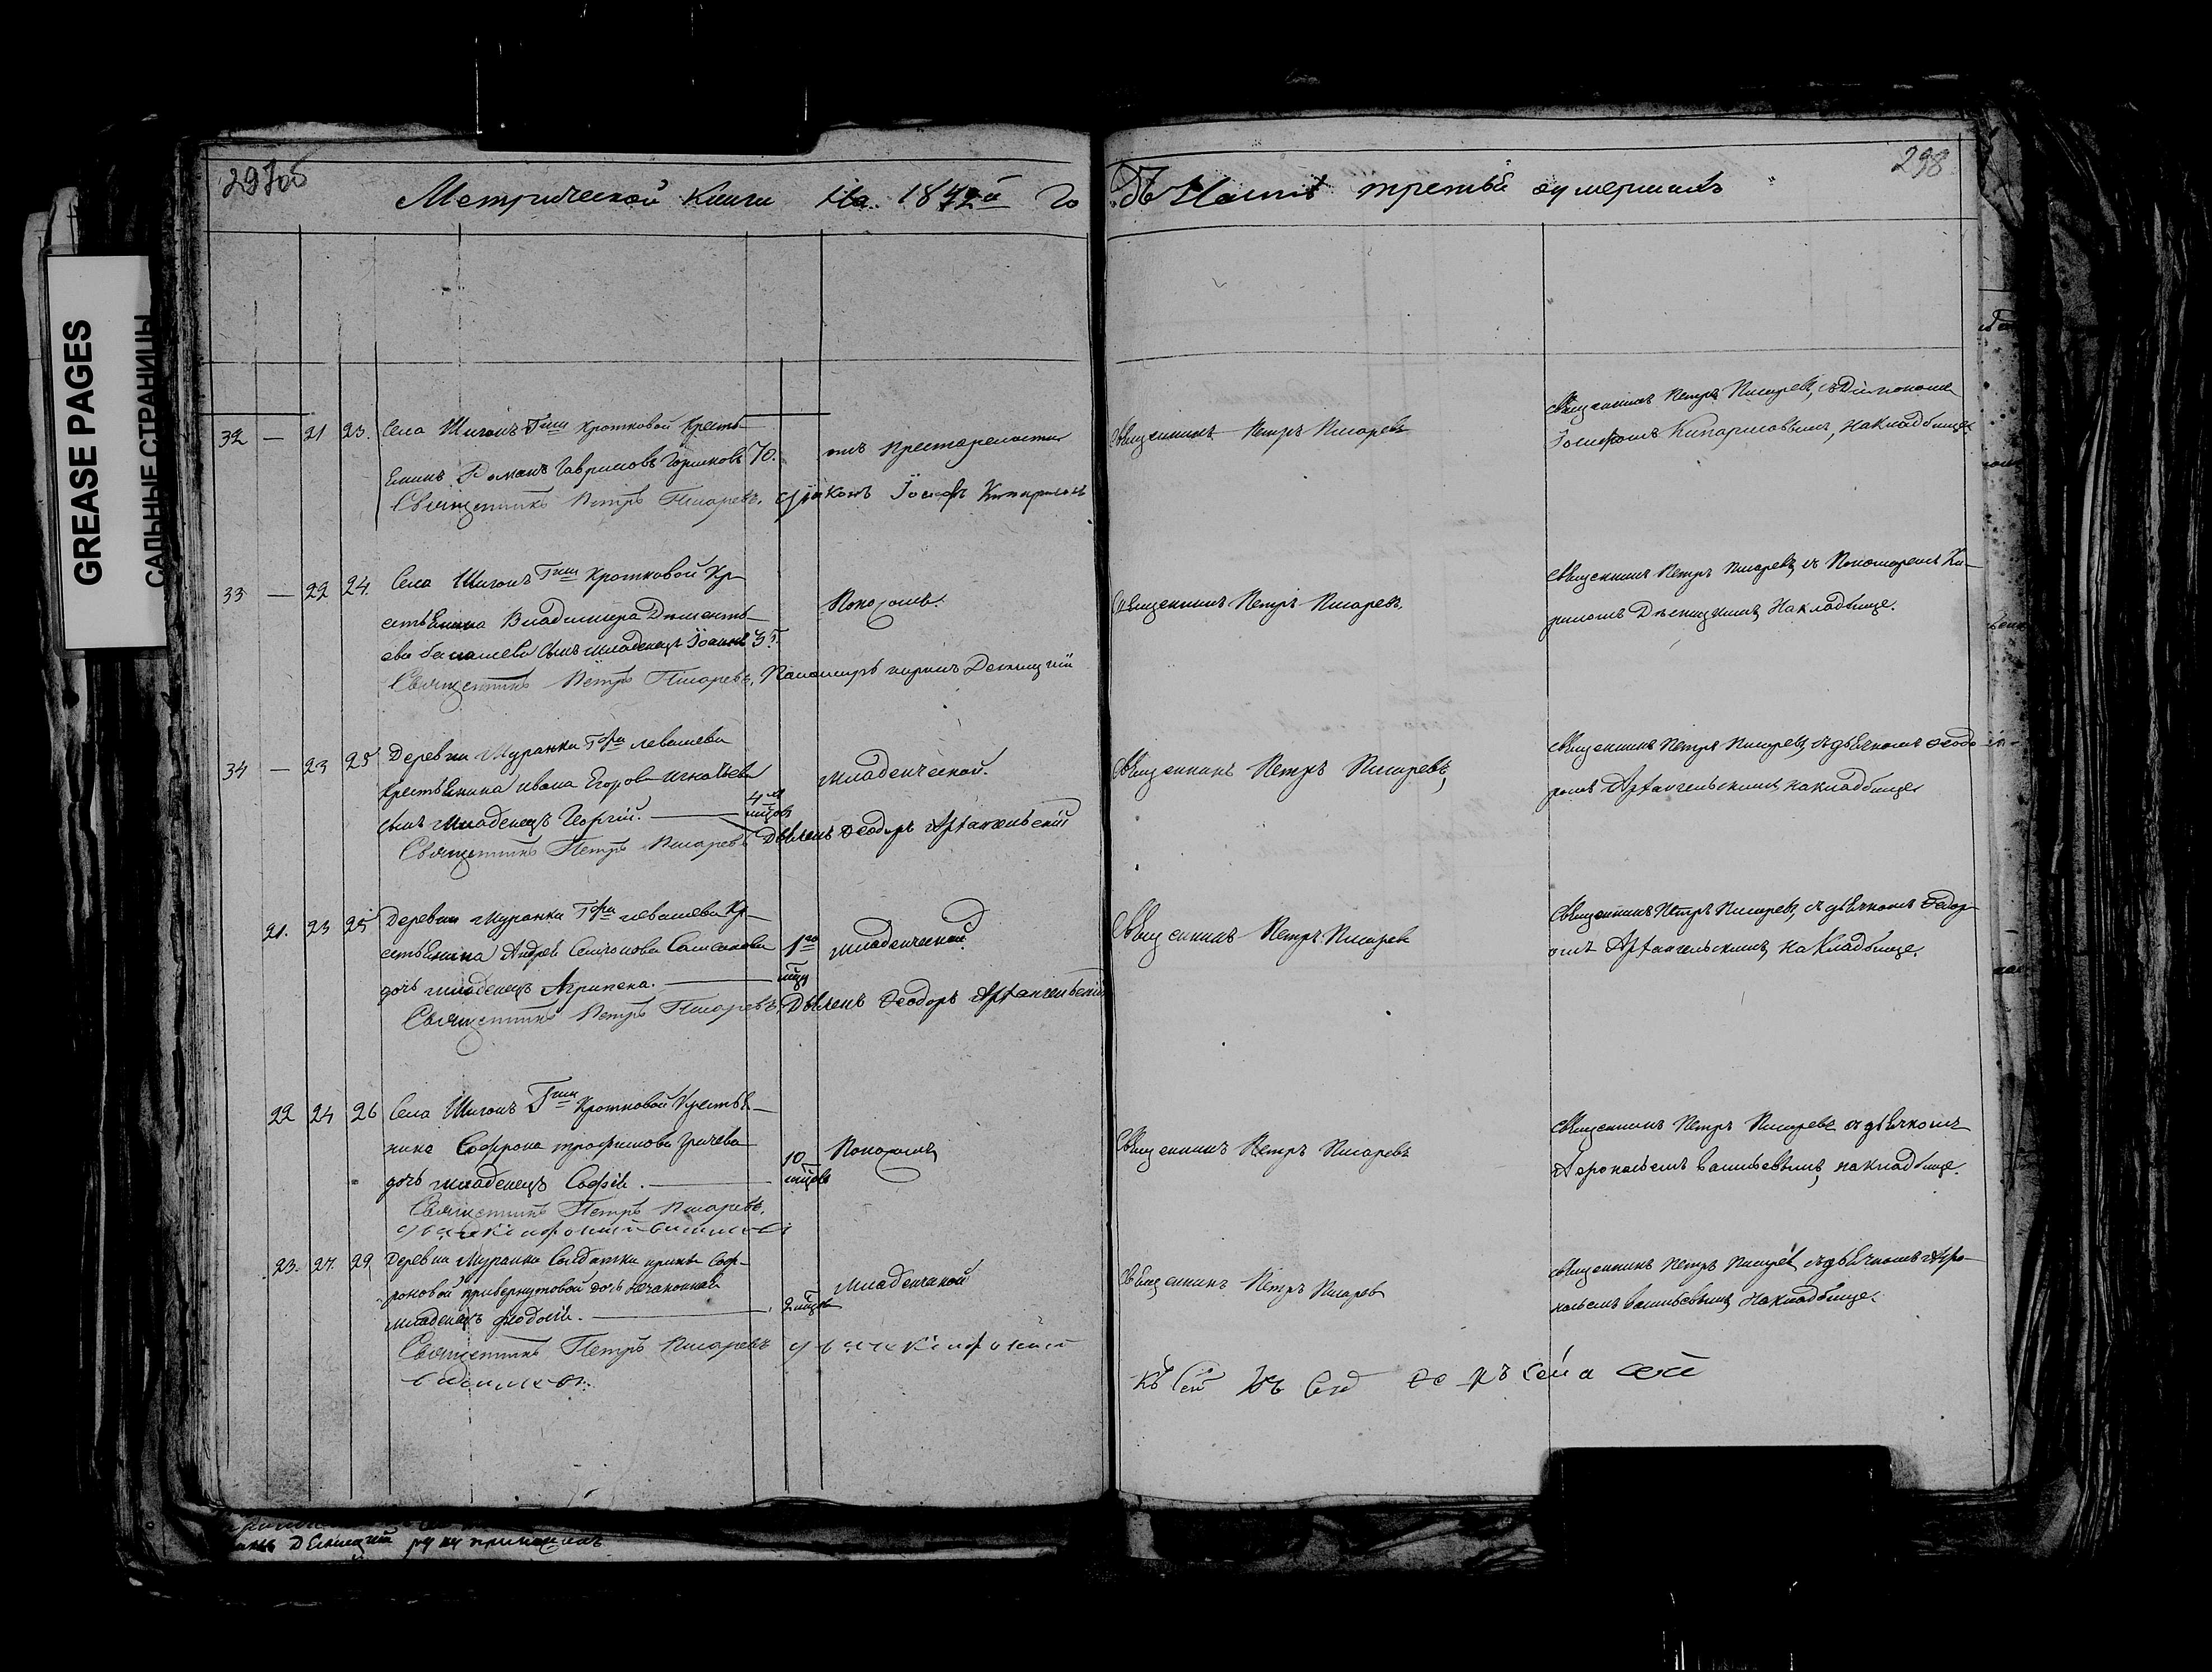 GREASE PAGES
САЛЬНЫЕ СТРАНИЦЫ
297об
298
Метрической Книги На 1842й го
дъ Часть третья о умершихъ
32 — 21 23. Села Шигонъ Гжи Кротковой Кресть
янинъ Романъ Гавриловъ Горшковъ 70. отъ престарелости
Священникъ Петръ Писаревъ. Діаконъ Іосифъ Кипарисовъ
Священникъ Петръ Писаревъ
Священникъ Петръ Писаревъ, съ Діакономъ
Іосифомъ Кипарисовымъ, на кладбище.
33 — 22 24. Села Шигонъ Гжи Кротковой Кр
естьянина Владимира Дементь
ева сынъ младенецъ Іоаннъ 3 г. Поносомъ.
Священникъ Петръ Писаревъ. Пономарь Кирилъ Десницкій
Священникъ Петръ Писаревъ.
Священникъ Петръ Писаревъ, съ Пономаремъ Ки
риломъ Десницкимъ, На кладбище.
34 — 23 25 Деревни Муранки Левашева
крестьянина Ивана Егорова Игнатьева Младенческой.
сынъ младенецъ Георгій. 4 мцов
Священникъ Петръ Писаревъ Дьячекъ Феодоръ Архангельскій
Священникъ Петръ Писаревъ,
Священникъ Петръ Писаревъ, съ дьячкомъ Феодо
ромъ Архангельскимъ, на кладбище
21. 23 25 Деревни Муранки Левашева Кр
естьянина Андрея 1го младенческой.
дочь младенецъ Агрипена. мцу
Священникъ Петръ Писаревъ. Дьячекъ Феодоръ Архангельскій
Священникъ Петръ Писарев
Священникъ Петръ Писаревъ, съ дьячкомъ Федор
омъ Архангельскимъ, на Кладбище.
22 24 26 Села Шигонъ Гжи Кротковой Крестья
нина Софрона Трофимова Грачева 10 Поносомъ
дочь младенецъ Софія. мцовъ
Священникъ Петръ Писаревъ.
Священникъ Петръ Писаревъ
Священникъ Петръ Писаревъ съ дьячкомъ
Васильевымъ, на кладбище.
23. 27. 29 Деревни Муранки Солдатки Ирины Соф
роновой дочь незаконная Младенческой
младенецъ Феодосія. 2 мцов
Священникъ Петръ Писаревъ
Священникъ Петръ Писарев
Священникъ Петръ Писарев, съ дьячкомъ
Васильевымъ, На кладбище.
Десницкій руку приложилъ